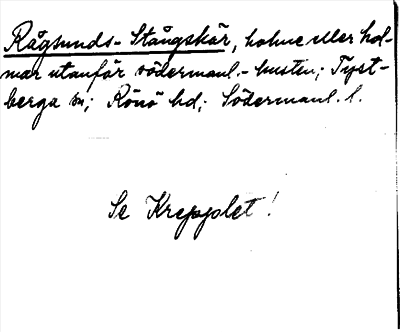 Rågsunds-Stångskär, holme eller hol-
mar utanför södermanl.-kusten; Tyst-
berga sn; Rönö hd; Södermanl. l.
Se Krepplet!